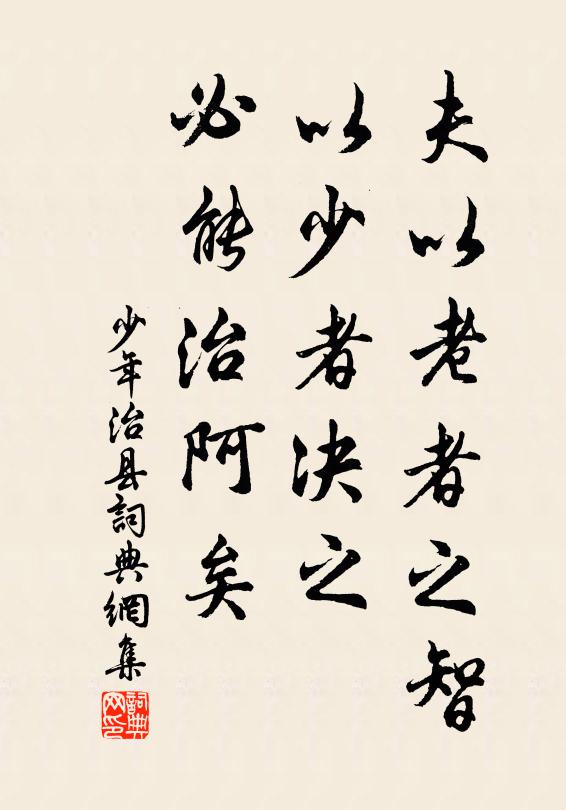 夫以老者之智
以少者决之
必能治阿矣
少年治县詞典網集
詞典
网印